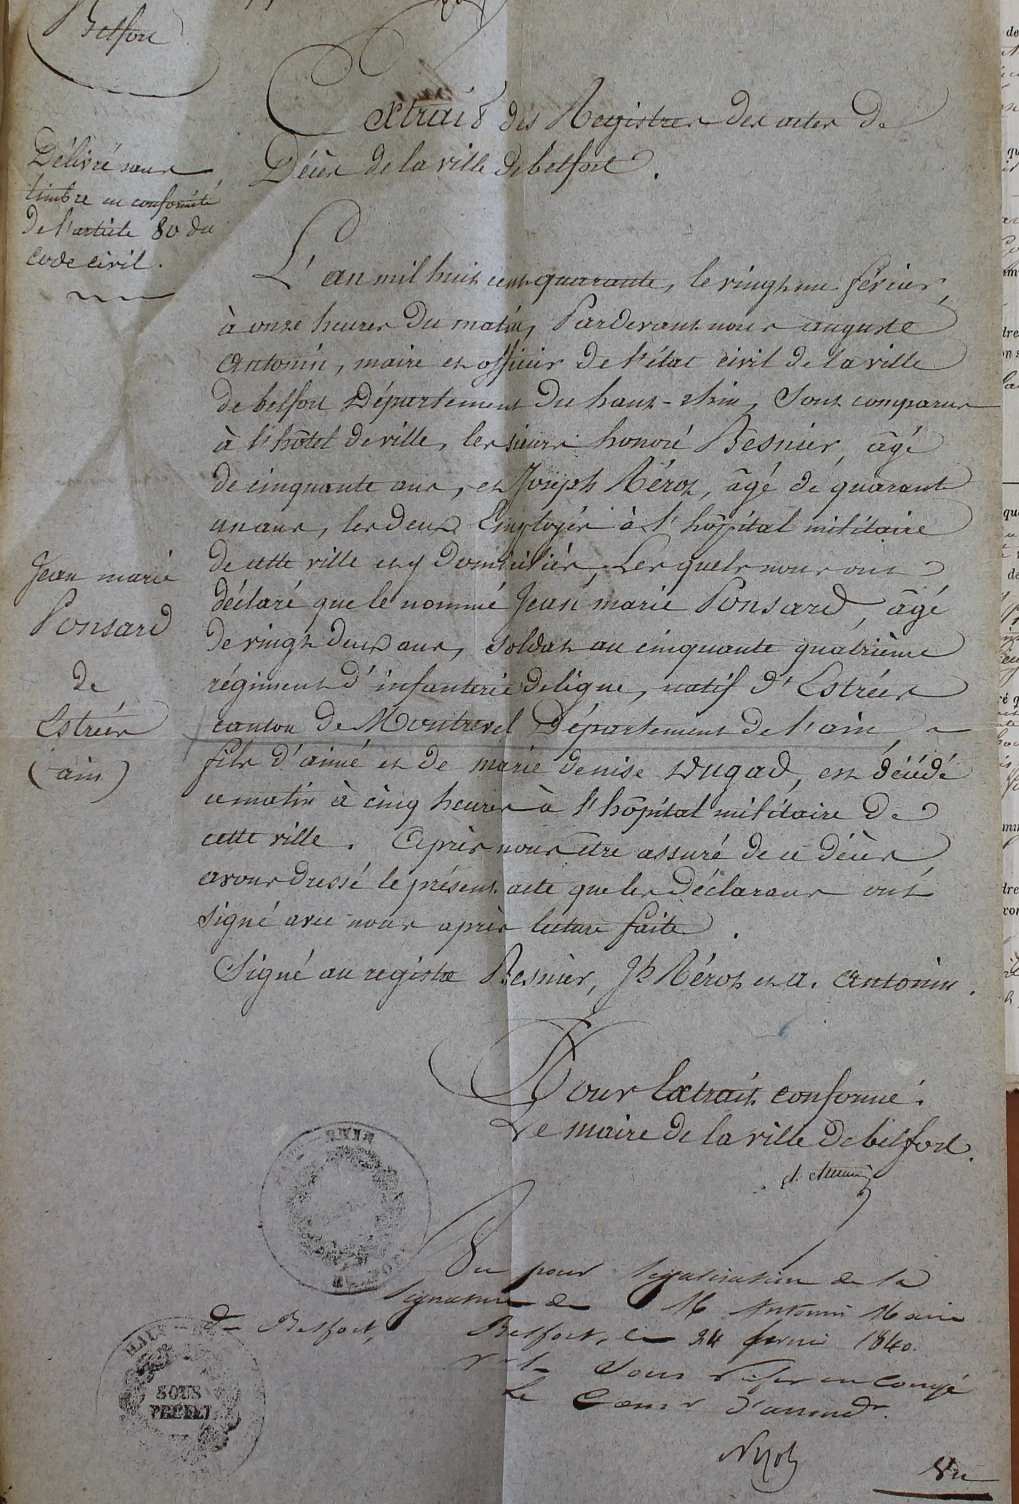 Belfort
Extrait des Registres des actes de
Décès de la ville de belfort.
Délivré sans
timbre en conformité
de l'article 80 du
code civil.
L'an mil huit cent quarante, le vingt un février,
à onze heures du matin, Pardevant nous auguste
antonin, maire et officier de l'état civil de la ville
de belfort Département du haut-rhin, Sont comparus
à l'hôtel de ville, les sieurs honoré Besnier, âgé
de cinquante ans, et Joseph Réroz, âgé de quarante
un ans, les deux Employés à l'hôpital militaire
de cette ville et y Domiciliés, Lesquels nous ont
déclaré que le nommé Jean marie Ponsard, âgé
de vingt deux ans, Soldat au cinquante quatrième
régiment d'infanterie de ligne, natif d'Estrées
canton de Montrevel Département de l'ain
fils d'aimé et de marie denise Dugad, est décédé
ce matin à cinq heures à l'hôpital militaire de
cette ville. Après nous être assuré de ce décès
avons dressé le présent acte que les Déclarans ont
signé avec nous après lecture faite.
Signé au registre Besnier, Jh Réroz et a. antonin.
Jean marie
Ponsard
de
Estrées
(ain)
Pour Extrait conforme.
Le maire de la ville de belfort.
Vu pour légalisation de la
signature de M Antonin Maire
de Belfort, Belfort, le 24 février 1840.
Sous Préfet en Congé
Le d'arrondt
HAUT-RHIN
HAUT-
SOUS
PREFET
Vu